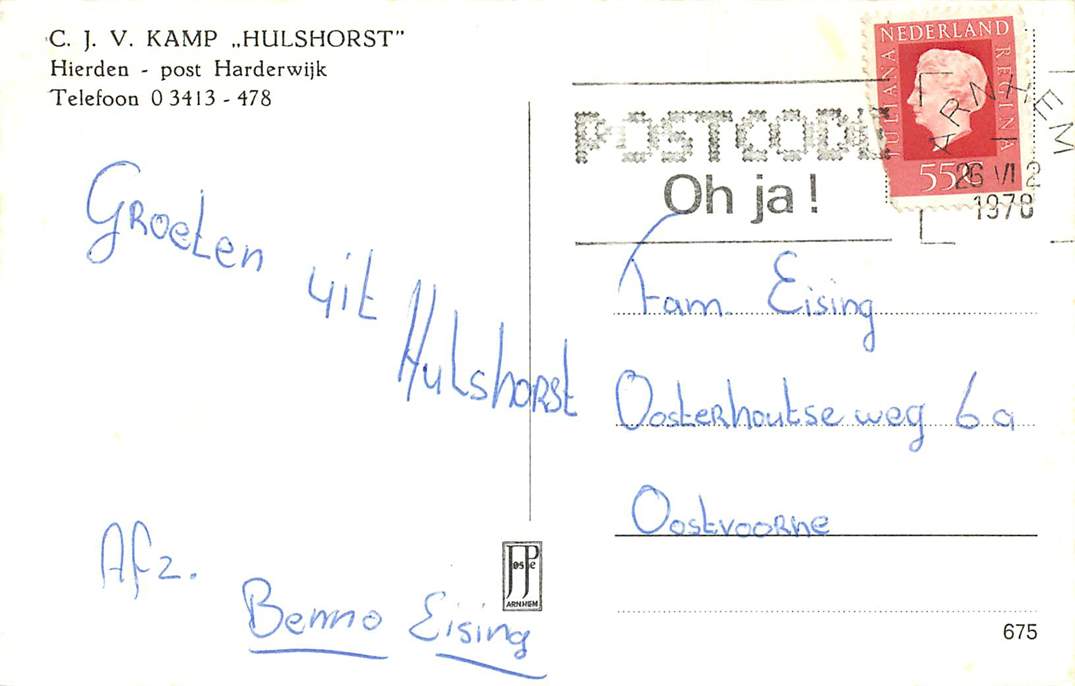 C. J. V. KAMP „HULSHORST”
Hierden - post Harderwijk
Telefoon 0 3413 - 478
NEDERLAND
JULIANA REGINA
55c
POSTCODE
Oh ja!
ARNHEM
26 VI
1978
Groeten uit Hulshorst
Afz.
Benno Eising
Fam. Eising
Oosterhoutse weg 6a
Oostvoorne
JosPe
ARNHEM
675